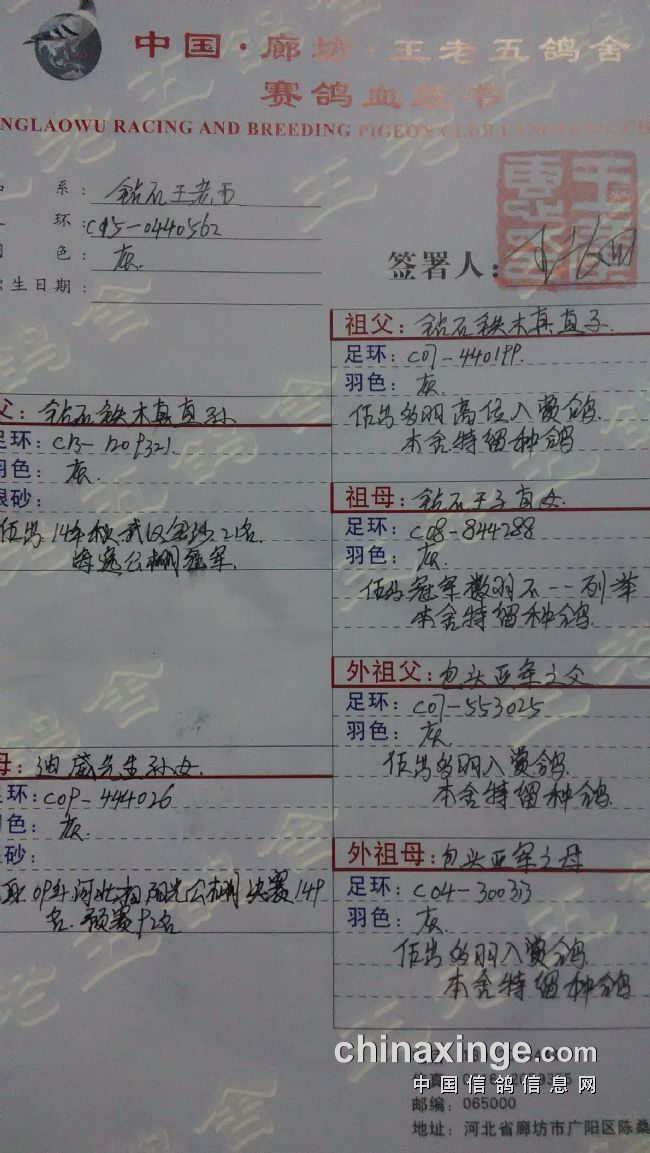 中国·廊坊 王老五鸽舍
赛鸽血统书
NGLAOWU RACING AND BREEDING PIGEON CLUB LANGFENG, CD
系: 钻石王老五
环: C15-0440562
色: 灰
出生日期:
签署人:
祖父: 钻石铁木真直子
足环: C07-440199
羽色: 灰
作出多羽高位入赏鸽
本舍特留种鸽
父: 钻石铁木真直孙
足环: C13-1209321
羽色: 灰
眼砂:
作出14年秋武汉金沙21名
公棚冠军
祖母: 钻石王子直女
足环: C08-844288
羽色: 灰
作出冠军数羽不一一列举
本舍特留种鸽
外祖父: 包头亚军之父
足环: C07-553025
羽色: 灰
作出多羽入赏鸽
本舍特留种鸽
母: 迪威先生孙女
足环: C09-444026
羽色: 灰
眼砂:
09年河北 阳光公棚决赛149
名 预赛92名
外祖母: 包头亚军之母
足环: C04-300313
羽色: 灰
作出多羽入赏鸽
本舍特留种鸽
chinaxinge.com
中国信鸽信息网
邮编: 065000
地址: 河北省廊坊市广阳区陈桑